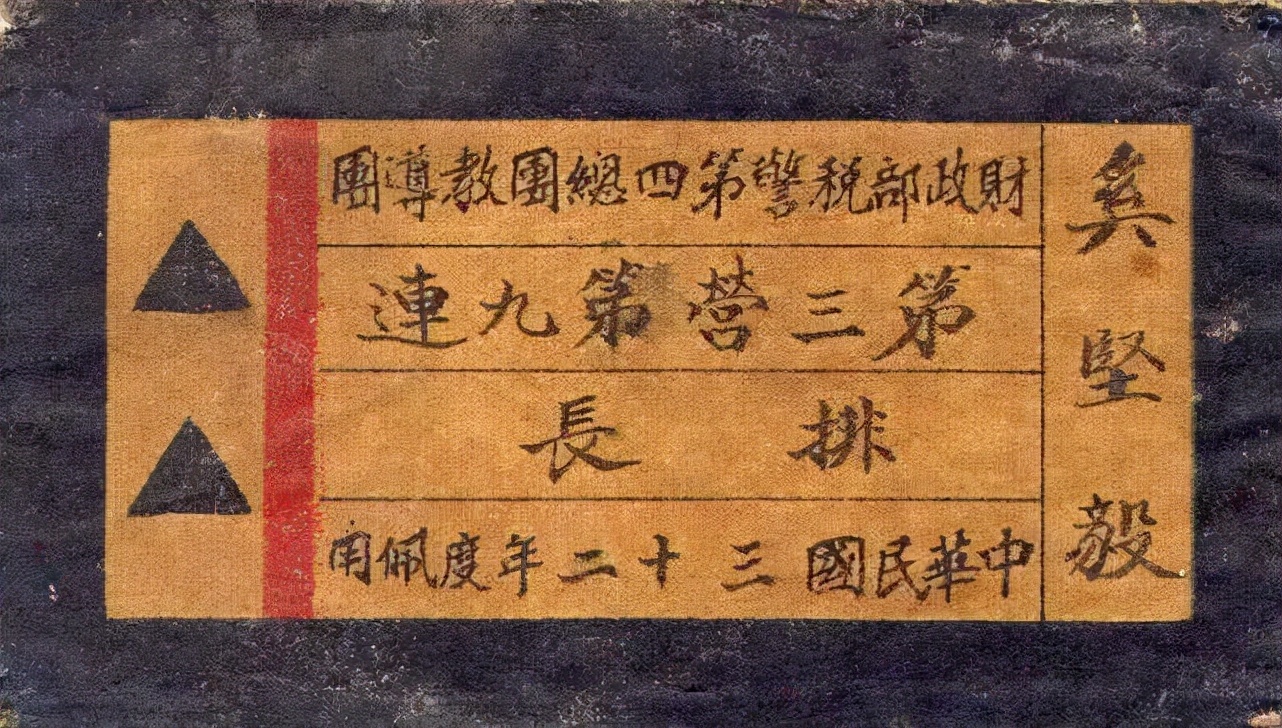 財政部税警第四總團教導團
第三營第九連
排長
中華民國三十二年度佩用
吳堅毅